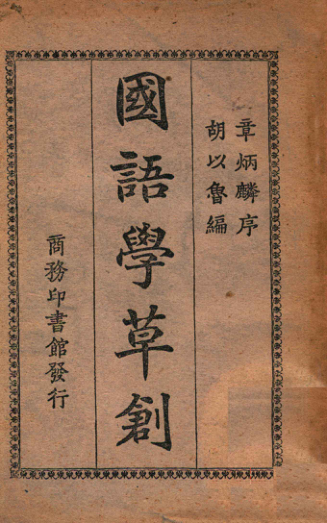 章炳麟序
胡以魯編
國語學草創
商務印書館發行